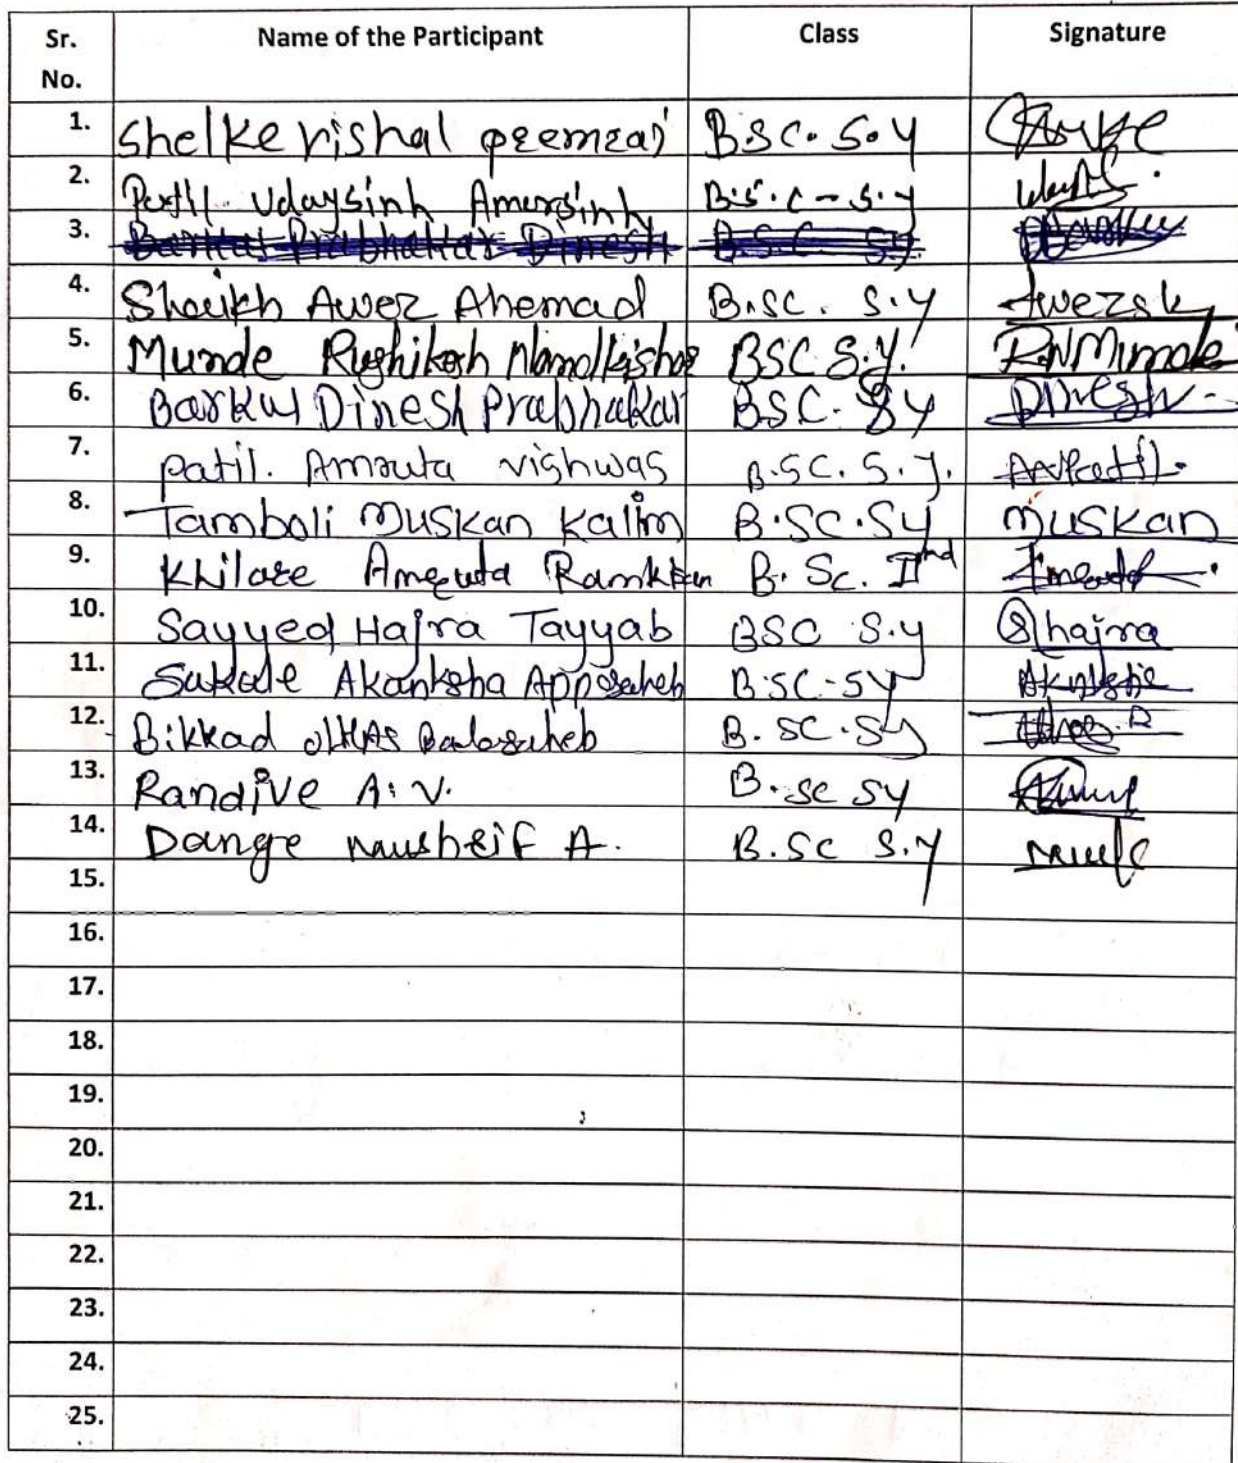 Sr. No. Name of the Participant Class Signature
1. Shelke Vishal Premraj B.SC. S.Y
2. Patil Udaysinh Amarsinh B.S.C - S.Y
3. Barkul Prabhakar Dinesh B.S.C SY
4. Shaikh Awez Ahemad B.SC. S.Y Awezsk
5. Munde Rushikesh Nandkishor BSC S.Y. RNMunde
6. Barkul Dinesh Prabhakar BSC. SY Dinesh
7. Patil. Amruta vishwas B.SC. S.Y. AVPatil
8. Tamboli Muskan Kalim B.SC.SY Muskan
9. Khilare Ameeuta B. Sc. IInd
10. Sayyed Hajra Tayyab BSC S.Y Shajra
11. Sukale Akanksha Appasaheb B.SC-SY
12. Bikkad Balasaheb B.SC.SY
13. Randive A.V. B.Sc SY
14. Dange A. B.SC S.Y
15.
16.
17.
18.
19.
20.
21.
22.
23.
24.
25.